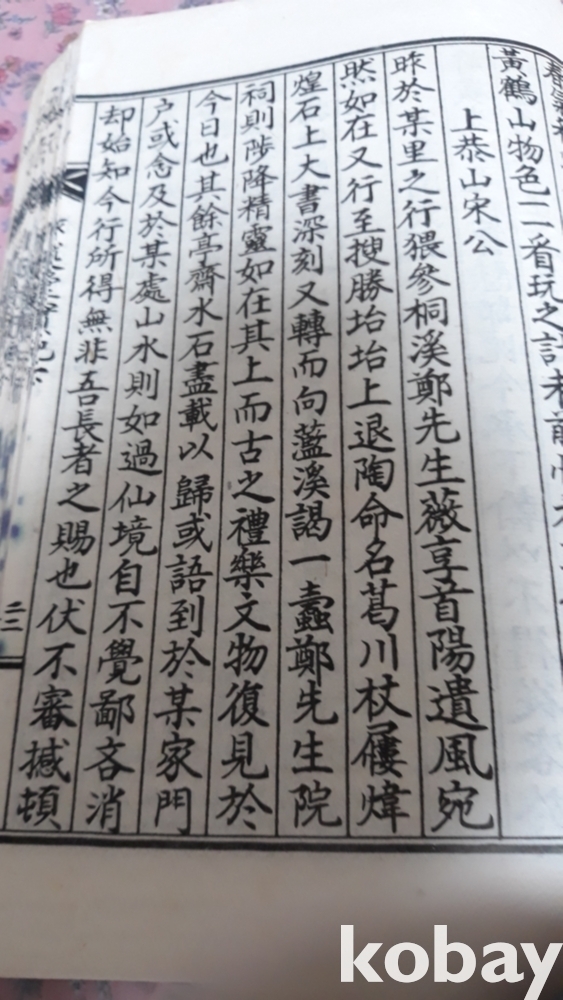 黃鶴山物色一一看玩之計者前
上恭山宋公
昨於某里之行猥參桐溪鄭先生薇享首陽遺風宛
然如在又行至搜勝坮坮上退陶命名葛川杖屨煒
煌石上大書深刻又轉而向藍溪謁一蠹鄭先生院
祠則陟降精靈如在其上而古之禮樂文物復見於
今日也其餘亭齋水石盡載以歸或語到於某家門
户或念及於某處山水則如過仙境自不覺鄙吝消
却始知今行所得無非吾長者之賜也伏不審撼頓
二
kobay